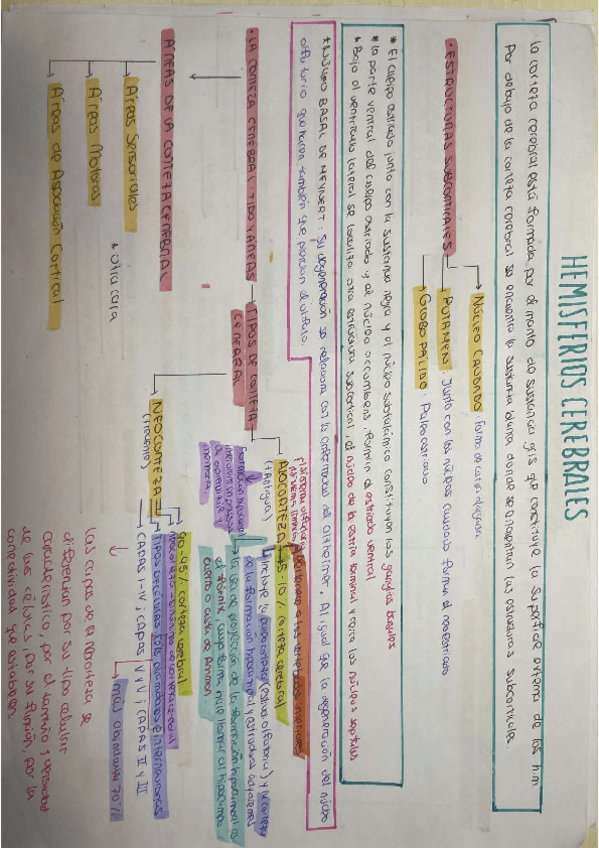 HEMISFERIOS CEREBRALES
La corteza cerebral está formada por el manto de sustancia gris que constituye la superficie externa de los h.m
Por debajo de la corteza cerebral se encuentra la sustancia blanca donde se encuentran las estructuras subcorticales.
· ESTRUCTURAS SUBCORTICALES
NÚCLEO CAUDADO · forma de cola alargada
PUTAMEN · Junto con los núcleos caudado forman el neoestriado
GLOBO PÁLIDO · Paleoestriado
* El cuerpo estriado junto con la sustancia negra y el núcleo subtalámico constituyen los ganglios basales
* La parte ventral del cuerpo estriado y el núcleo accumbens, forman el estriado ventral
* Bajo el ventrículo lateral se localiza otra estructura subcortical, el núcleo de la estría terminal y cerca los núcleos septales
* NÚCLEO BASAL DE MEYNERT: Su degeneración se relaciona con la enfermedad del alzheimer. Al igual que la degeneración del núcleo
olfatorio que hacen también que pierdan el olfato.
· LA CORTEZA CEREBRAL: TIPO Y ÁREAS
TIPOS DE CORTEZA
CEREBRAL
ALOCORTEZA
(+ Antigua)
5-10% corteza cerebral
Incluye la paleocorteza (estrías olfatorias) y la corteza
de la formación hipocampal y estructuras adyacentes
La vía de proyección de la formación hipocampal es
el fornix, cuya forma hace llamar al hipocampo
cuerno o asta de Ammon.
NEOCORTEZA
(+ reciente)
90-95% corteza cerebral
TIPOS DE CÉLULAS: Cels piramidales e interneuronas
CAPAS I-IV; CAPAS V y VI; CAPAS II y III
más abundante 70%
Las capas de la neocorteza se
diferencian por su tipo celular
característico, por el tamaño y densidad
de las células, por su función, por la
conectividad que establecen.
ÁREAS DE LA CORTEZA CEREBRAL
Áreas Sensoriales
Áreas Motoras
Áreas de Asociación Cortical
* otra cara